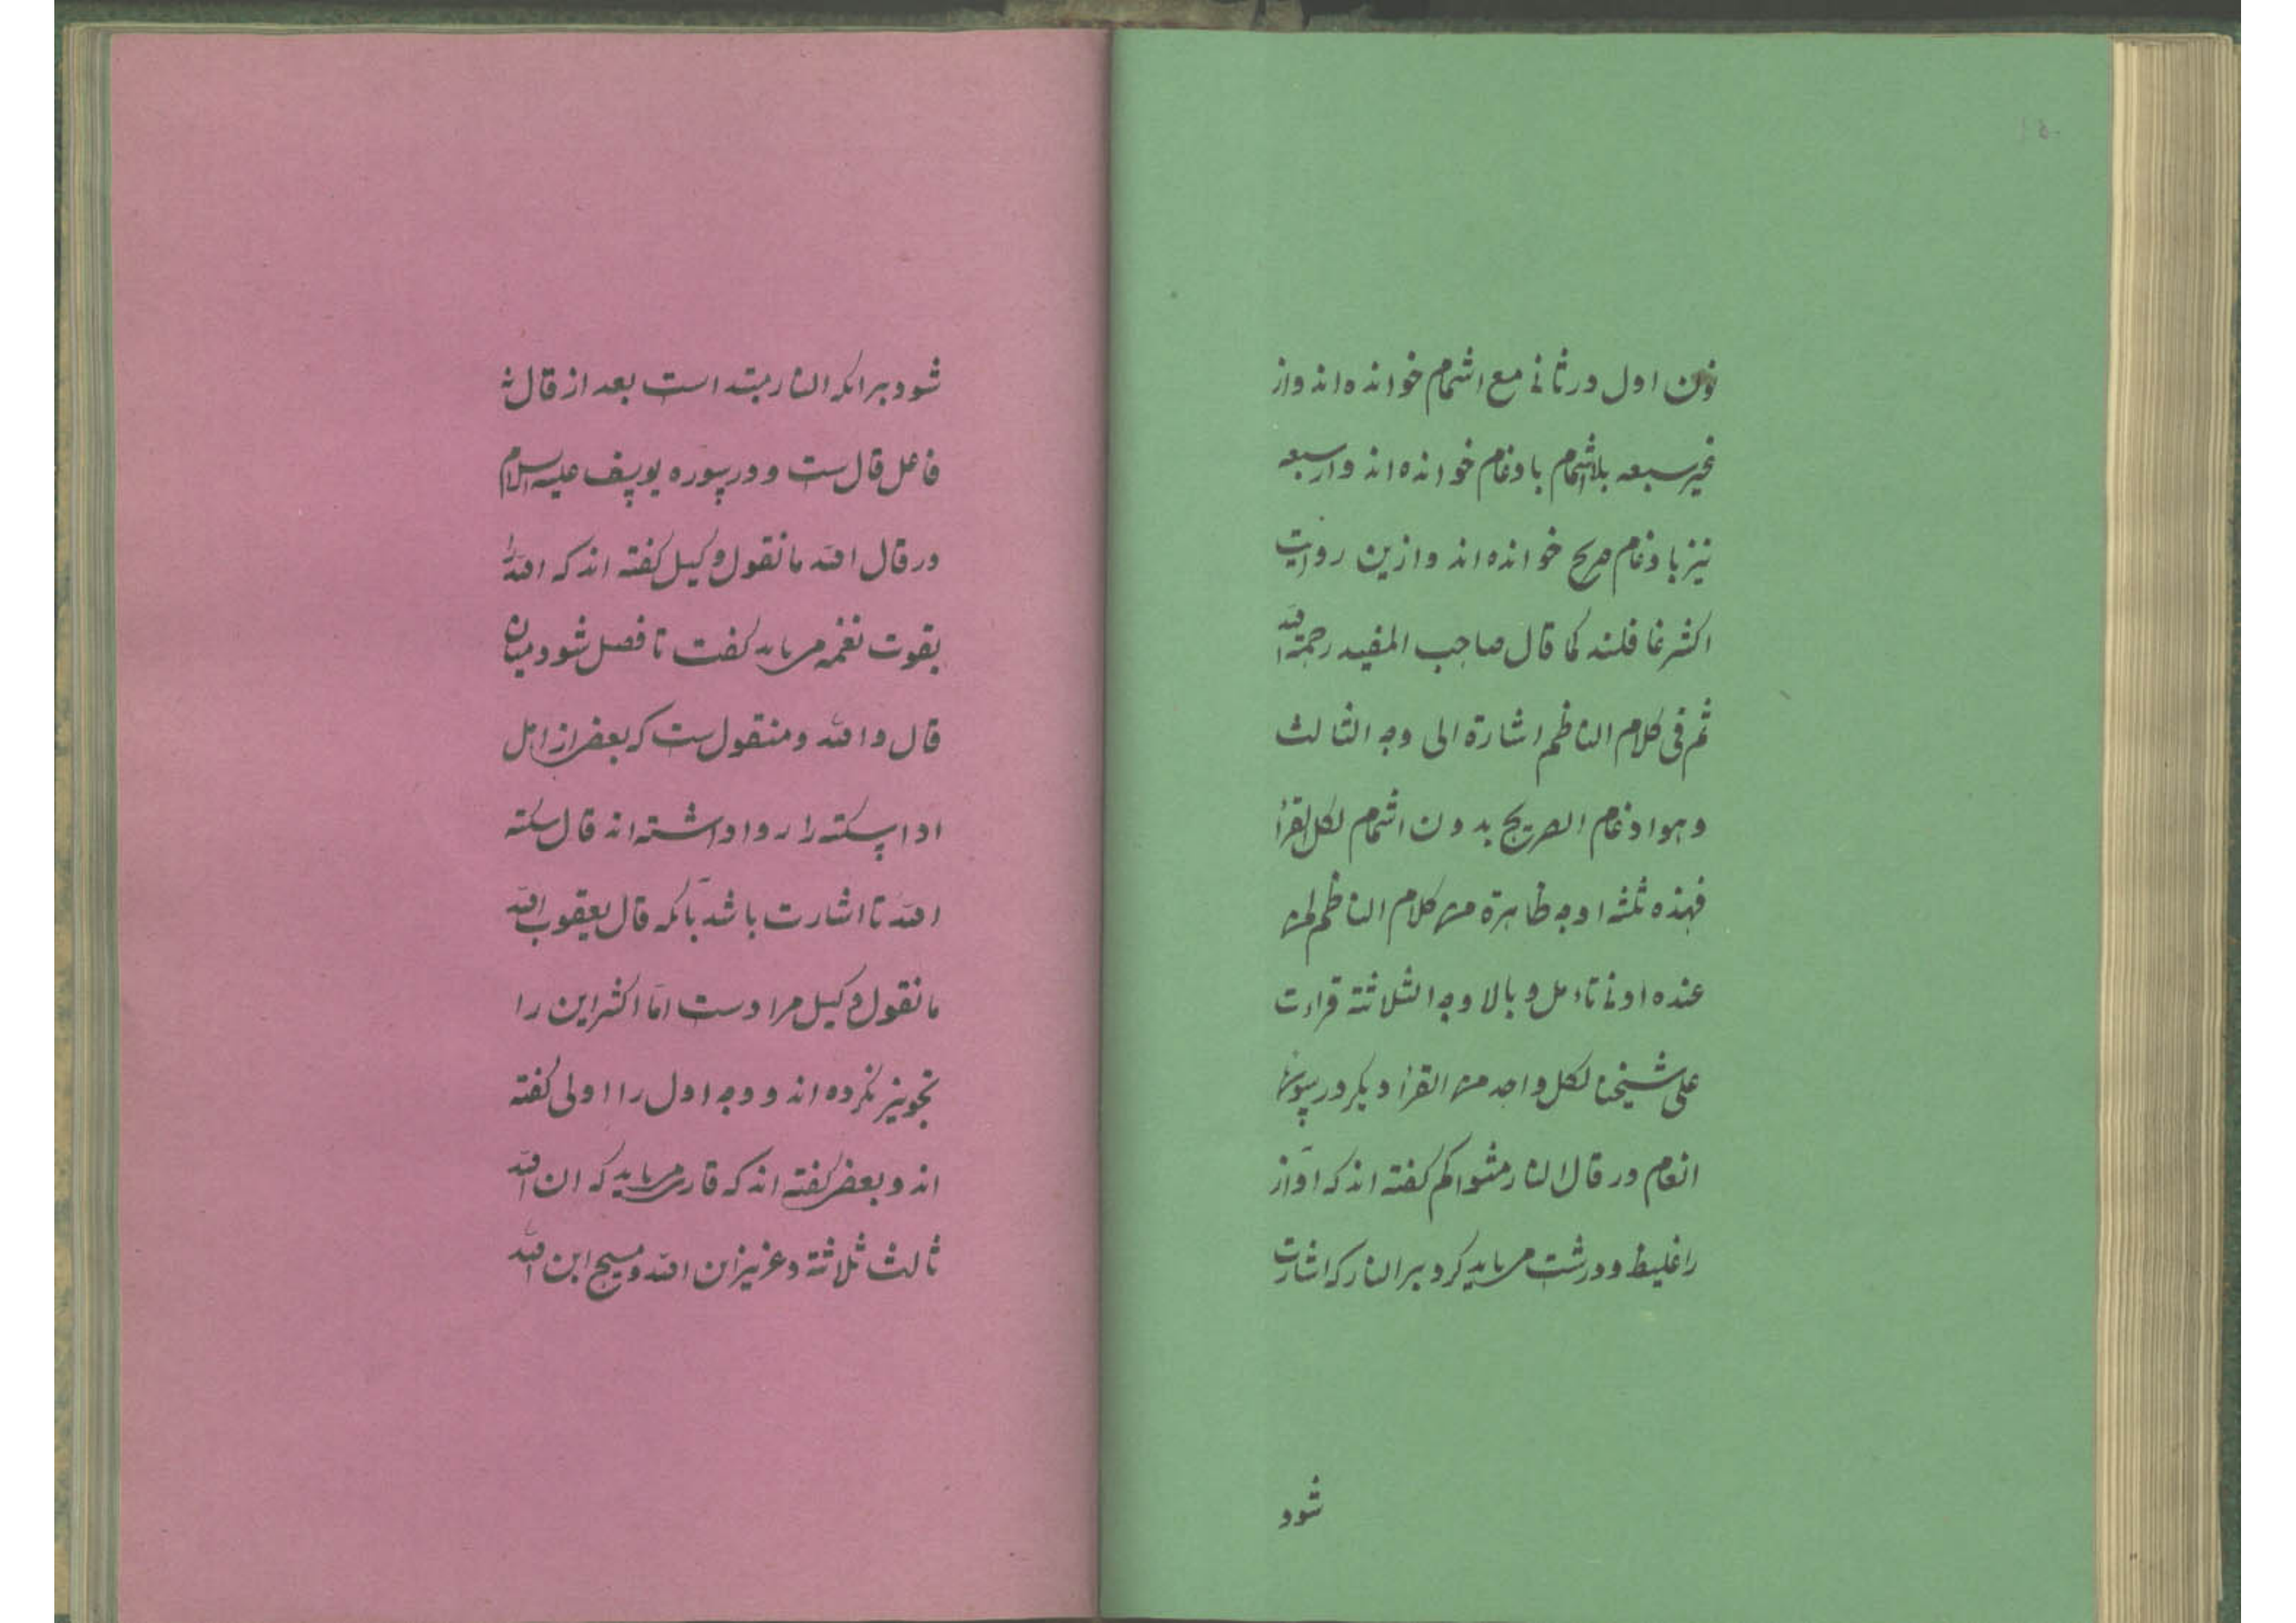 نون اول در ثانی مع اشمام خوانده اند و از
غیر سبعه بلا اشمام بادغام خوانده اند و از سبعه
نیز بادغام صریح خوانده اند و ازین روایت
اکثر غافلند کما قال صاحب المفید رحمة الله
ثم فی کلام الناظم اشارة الی وجه الثالث
و هو ادغام الصریح بدون اشمام لکل القراء
فهذه ثلثه اوجه ظاهرة من کلام الناظم لمن
عنده ادنا تاءمل و بالاوجه الثلاثة قراءت
علی شیخنا لکل واحد من القراء دیگر در سورة
انعام در قال النار مثواکم گفته اند که آواز
را غلیظ و درشت می باید کرد بر النار که اشارت
شود
شود بر انکه النار مبتداست بعد از قال نه
فاعل قال ست و در سوره یوسف علیه السلام
در قال الله ما نقول وکیل گفته اند که الله را
بقوت نغمه می باید گفت تا فصل شود میان
قال و الله و منقول ست که بعضی از اهل
ادا سکته را روا داشته اند قال سکته
الله تا اشارت باشد بآنکه قال یعقوب الله
ما نقول وکیل مرادست اما اکثر این را
تجویز نکرده اند و وجه اول را اولی گفته
اند و بعضی گفته اند که قاری می باید که ان الله
ثالث ثلاثة و عزیز ان الله و مسیح ابن الله